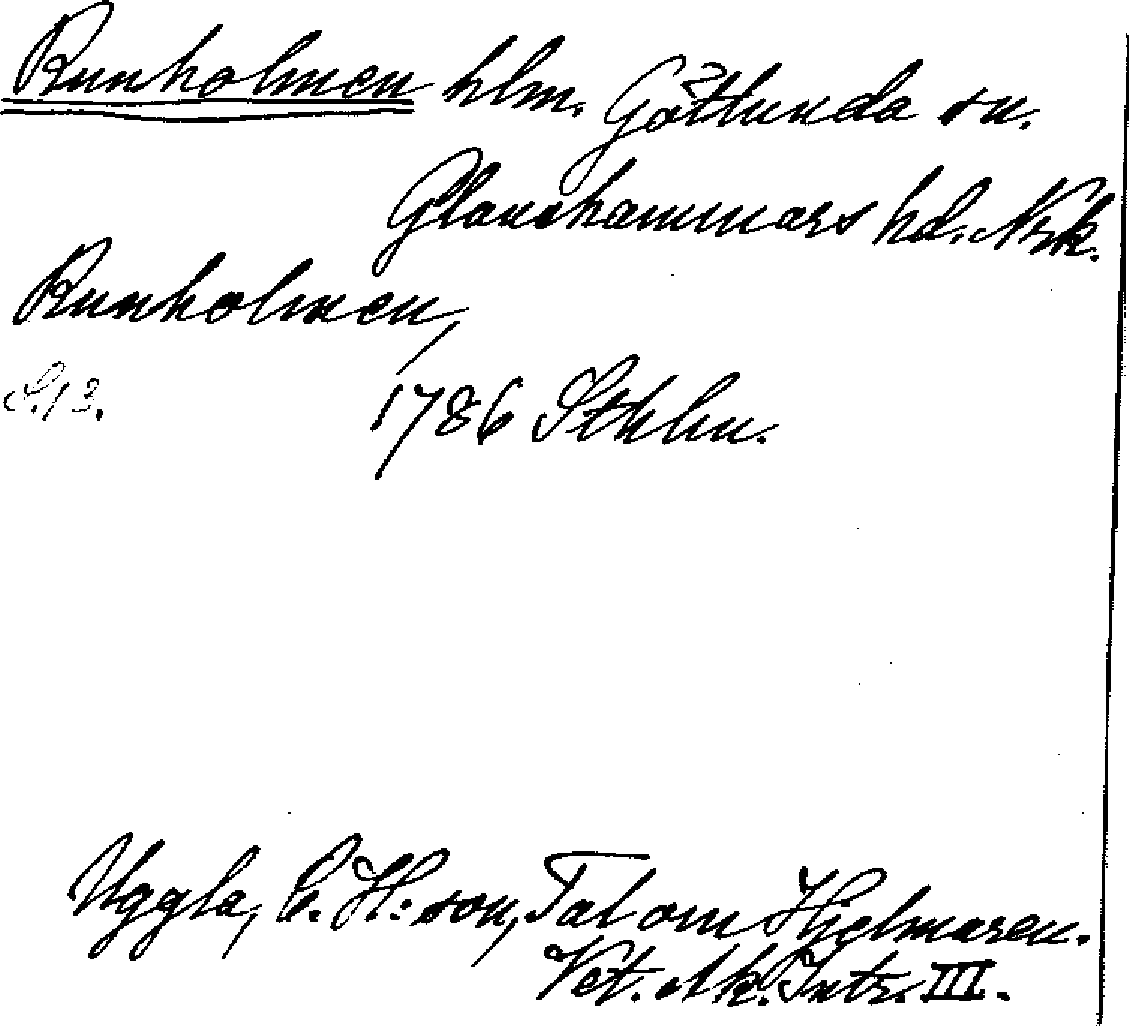 Runholmen hlm. Götlunda sn.
Glanshammars hd. Nrk.
Runholmen,
S. 13.
1786 Sthlm.
Uggla, C. H:son, Tal om Hjelmaren.
Vet. Ak. Intr. III.